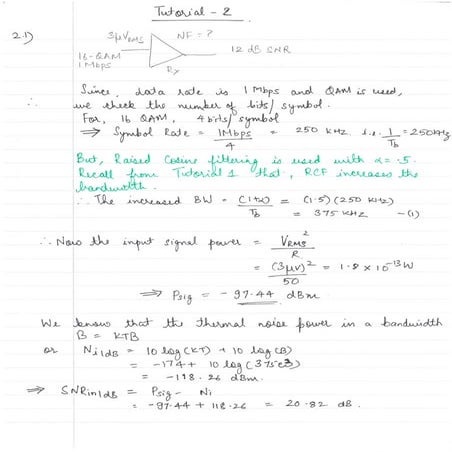 Tutorial - 2
2.1)
3μVRMS
NF = ?
16-QAM
1 Mbps
12 dB SNR
Rx
Since, data rate is 1 Mbps and QAM is used,
∴ we check the number of bits/symbol.
For, 16 QAM, 4 bits/symbol
⇒ Symbol Rate = 1Mbps/4 = 250 KHz i.e. 1/Tb = 250KHz
But, Raised Cosine filtering is used with α = .5.
Recall from Tutorial 1 that, RCF increases the
bandwidth.
∴ The increased BW = (1+α)/Tb = (1.5)(250 KHz)
= 375 KHz -(1)
∴ Now the input signal power = VRMS²/R
= (3μV)²/50 = 1.8 × 10⁻¹³ W
⇒ Psig = - 97.44 dBm.
We know that the thermal noise power in a bandwidth
B = KTB
or Ni|dB = 10 log(KT) + 10 log(B)
= -174 + 10 log(375e3)
= -118.26 dBm.
⇒ SNRin|dB = Psig - Ni
= -97.44 + 118.26 = 20.82 dB.